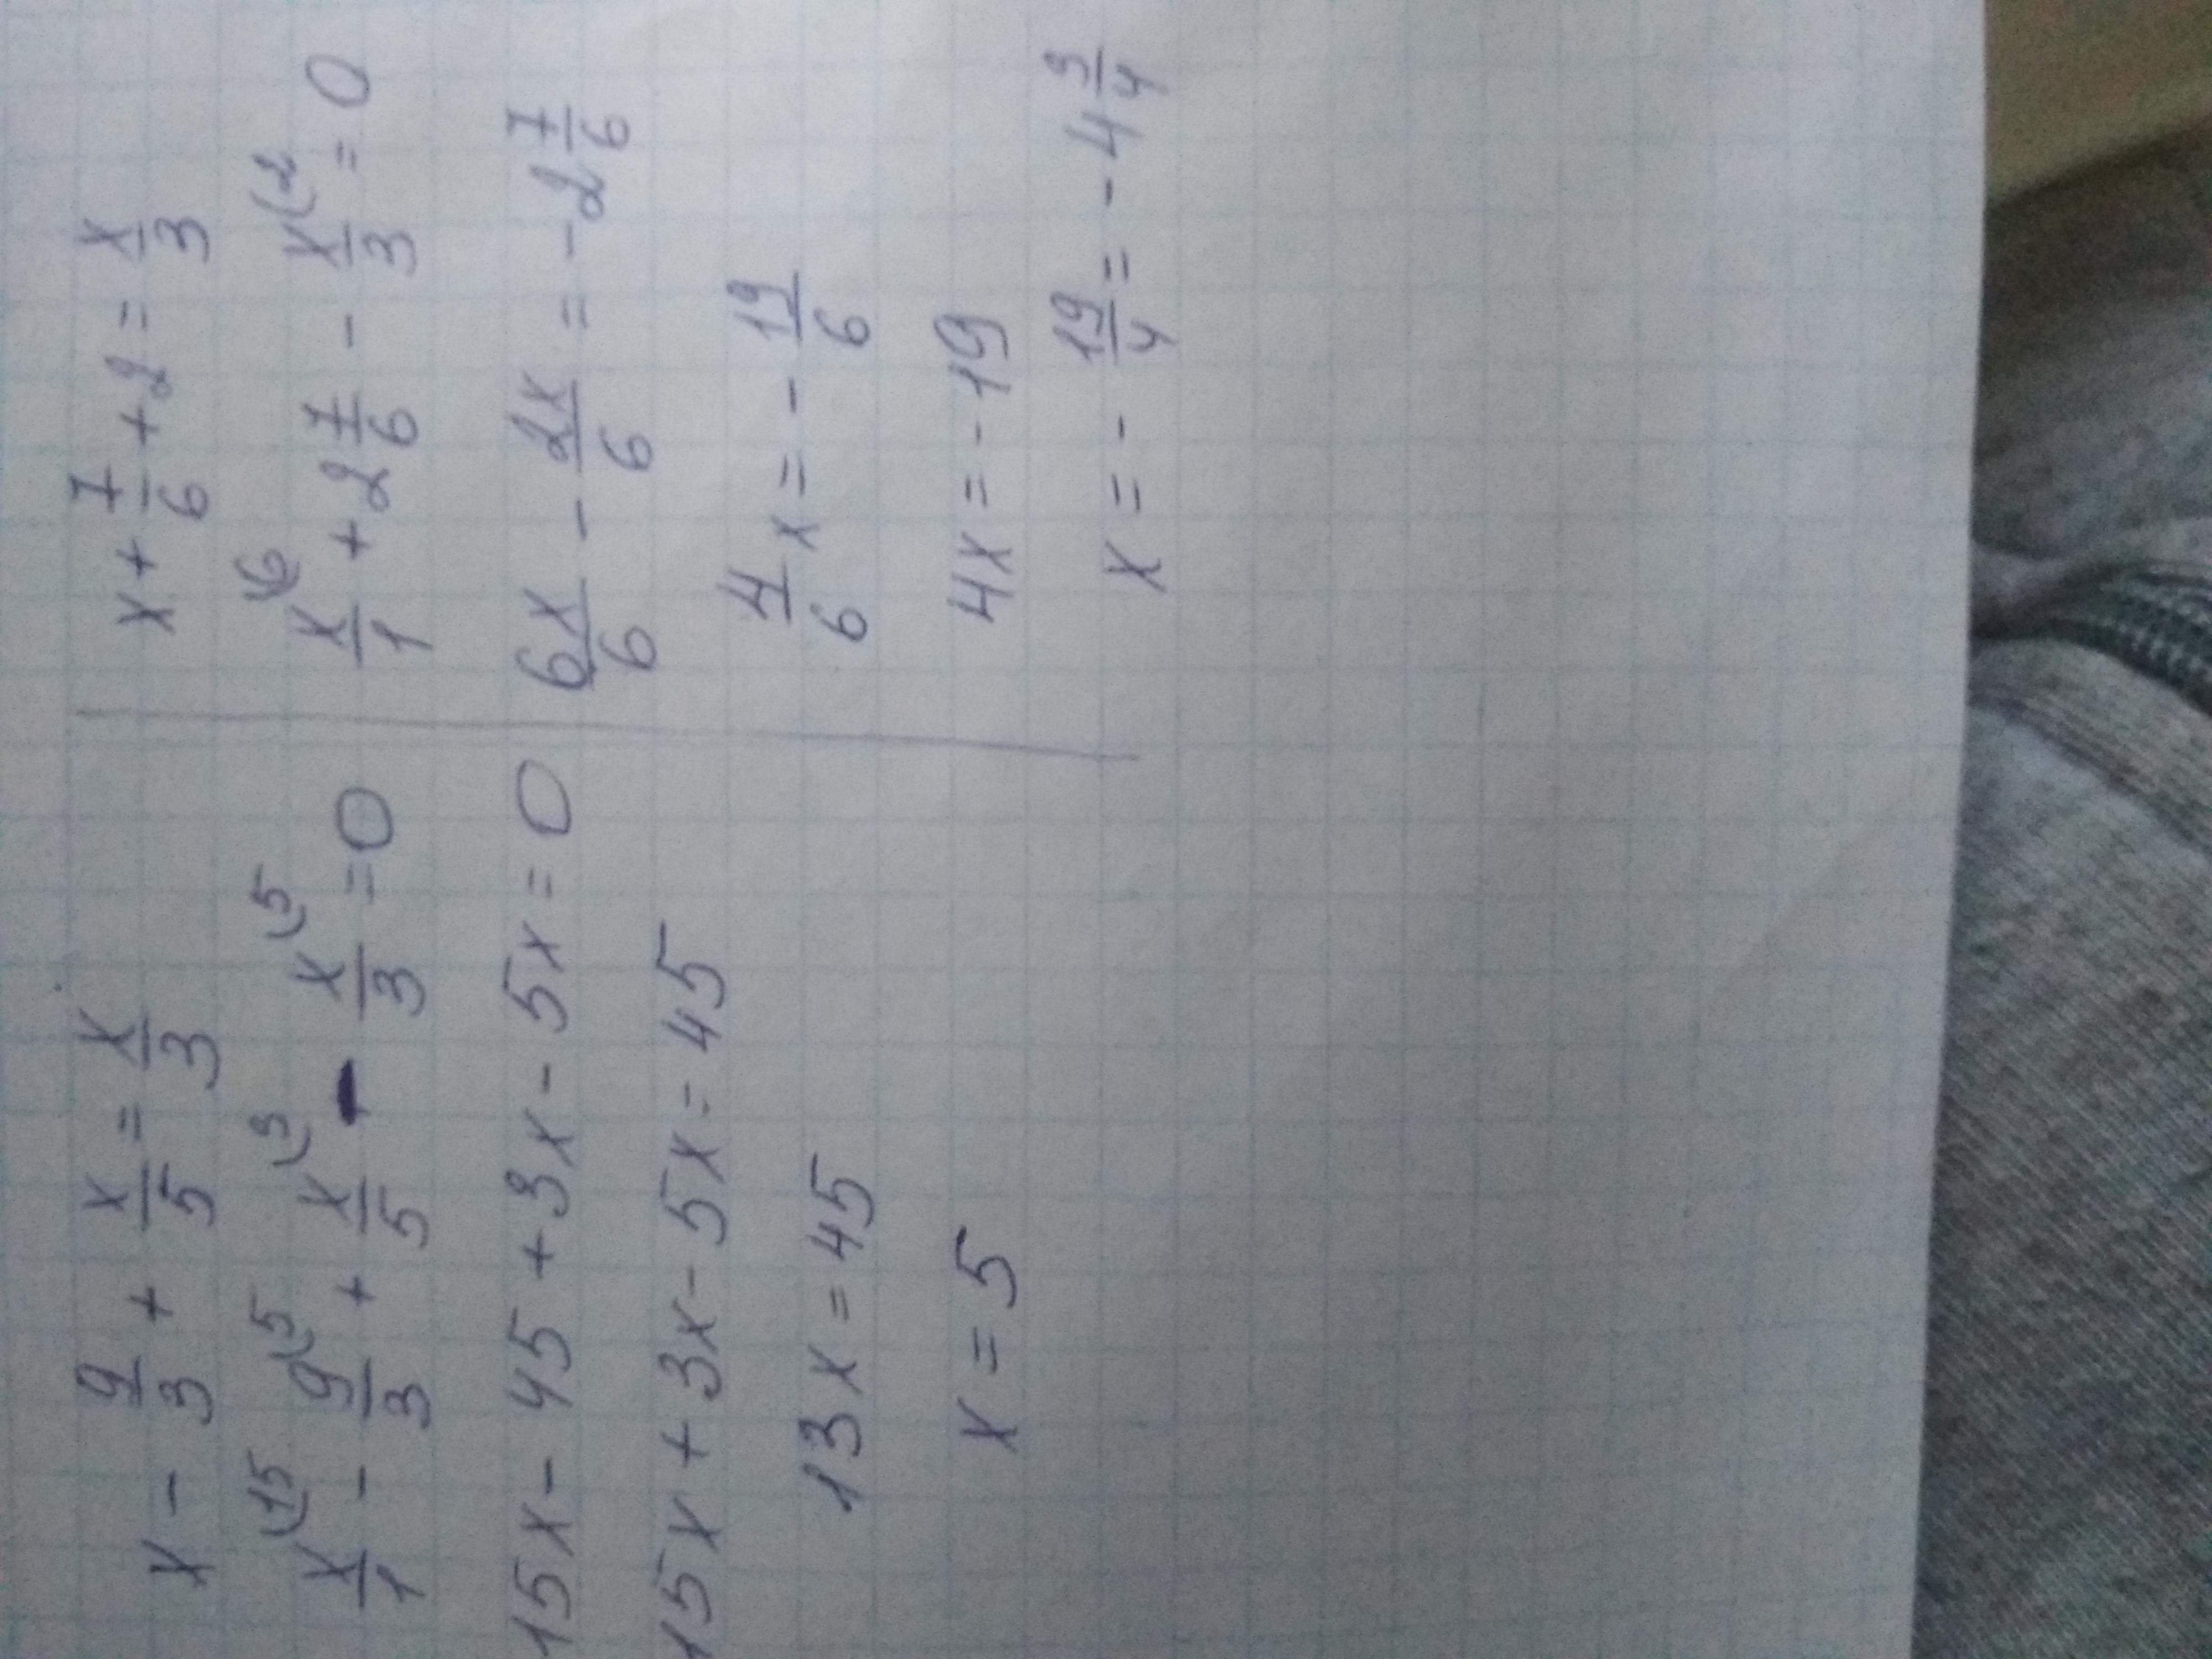 x - 9/3 + x/5 = x/3
x/1 (15 - 9/3 (5 + x/5 (3 - x/3 (5 = 0
15x - 45 + 3x - 5x = 0
15x + 3x - 5x = 45
13x = 45
x = 5
x + 7/6 + 2 = x/3
x/1 (6 + 2 7/6 - x/3 (2 = 0
6x/6 - 2x/6 = -2 7/6
4/6 x = - 19/6
4x = -19
x = - 19/4 = - 4 3/4